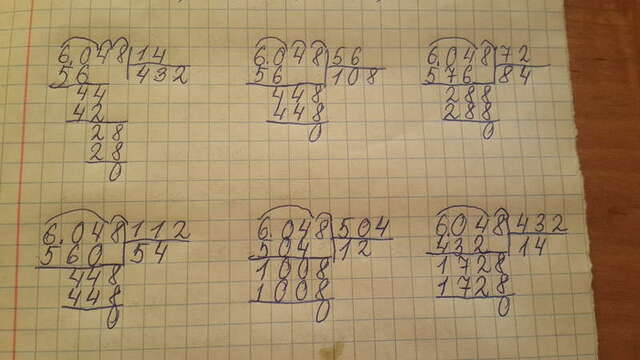 6.048 14
56 432
44
42
28
28
0
6.048 56
56 108
448
448
0
6.048 72
576 84
288
288
0
6.048 112
560 54
448
448
0
6.048 504
504 12
1008
1008
0
6.048 432
432 14
1728
1728
0